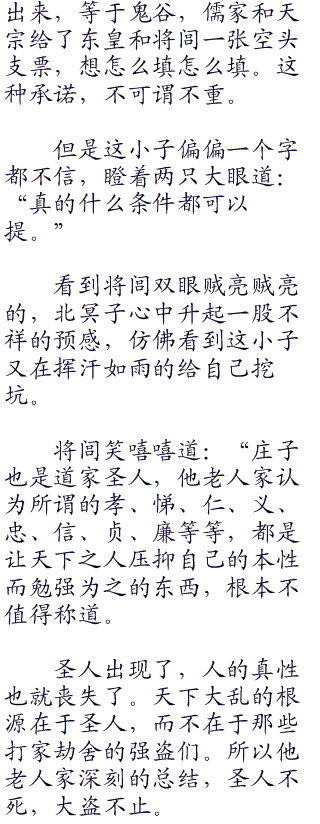 出来，等于鬼谷，儒家和天
宗给了东皇和将闾一张空头
支票，想怎么填怎么填。这
种承诺，不可谓不重。
但是这小子偏偏一个字
都不信，瞪着两只大眼道：
“真的什么条件都可以
提。”
看到将闾双眼贼亮贼亮
的，北冥子心中升起一股不
祥的预感，仿佛看到这小子
又在挥汗如雨的给自己挖
坑。
将闾笑嘻嘻道：“庄子
也是道家圣人，他老人家认
为所谓的孝、悌、仁、义、
忠、信、贞、廉等等，都是
让天下之人压抑自己的本性
而勉强为之的东西，根本不
值得称道。
圣人出现了，人的真性
也就丧失了。天下大乱的根
源在于圣人，而不在于那些
打家劫舍的强盗们。所以他
老人家深刻的总结，圣人不
死，大盗不止。